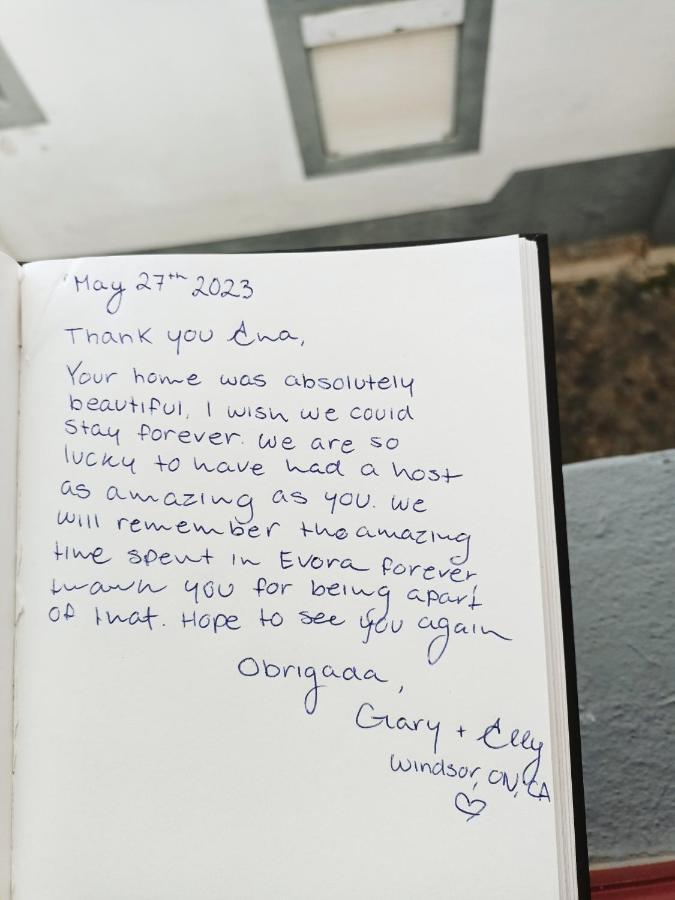 May 27th 2023
Thank you Ena,
Your home was absolutely
beautiful. I wish we could
stay forever. We are so
lucky to have had a host
as amazing as you. We
will remember the amazing
time spent in Evora forever,
thank you for being apart
of that. Hope to see you again
Obrigada,
Gary + Elly
Windsor, ON, CA